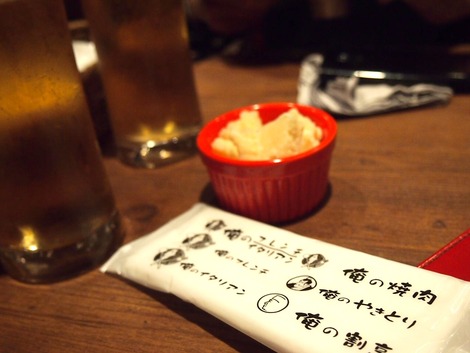 俺のフレンチ
イタリアン
俺のフレンチ
俺のイタリアン
俺の焼肉
俺のやきとり
俺の割烹